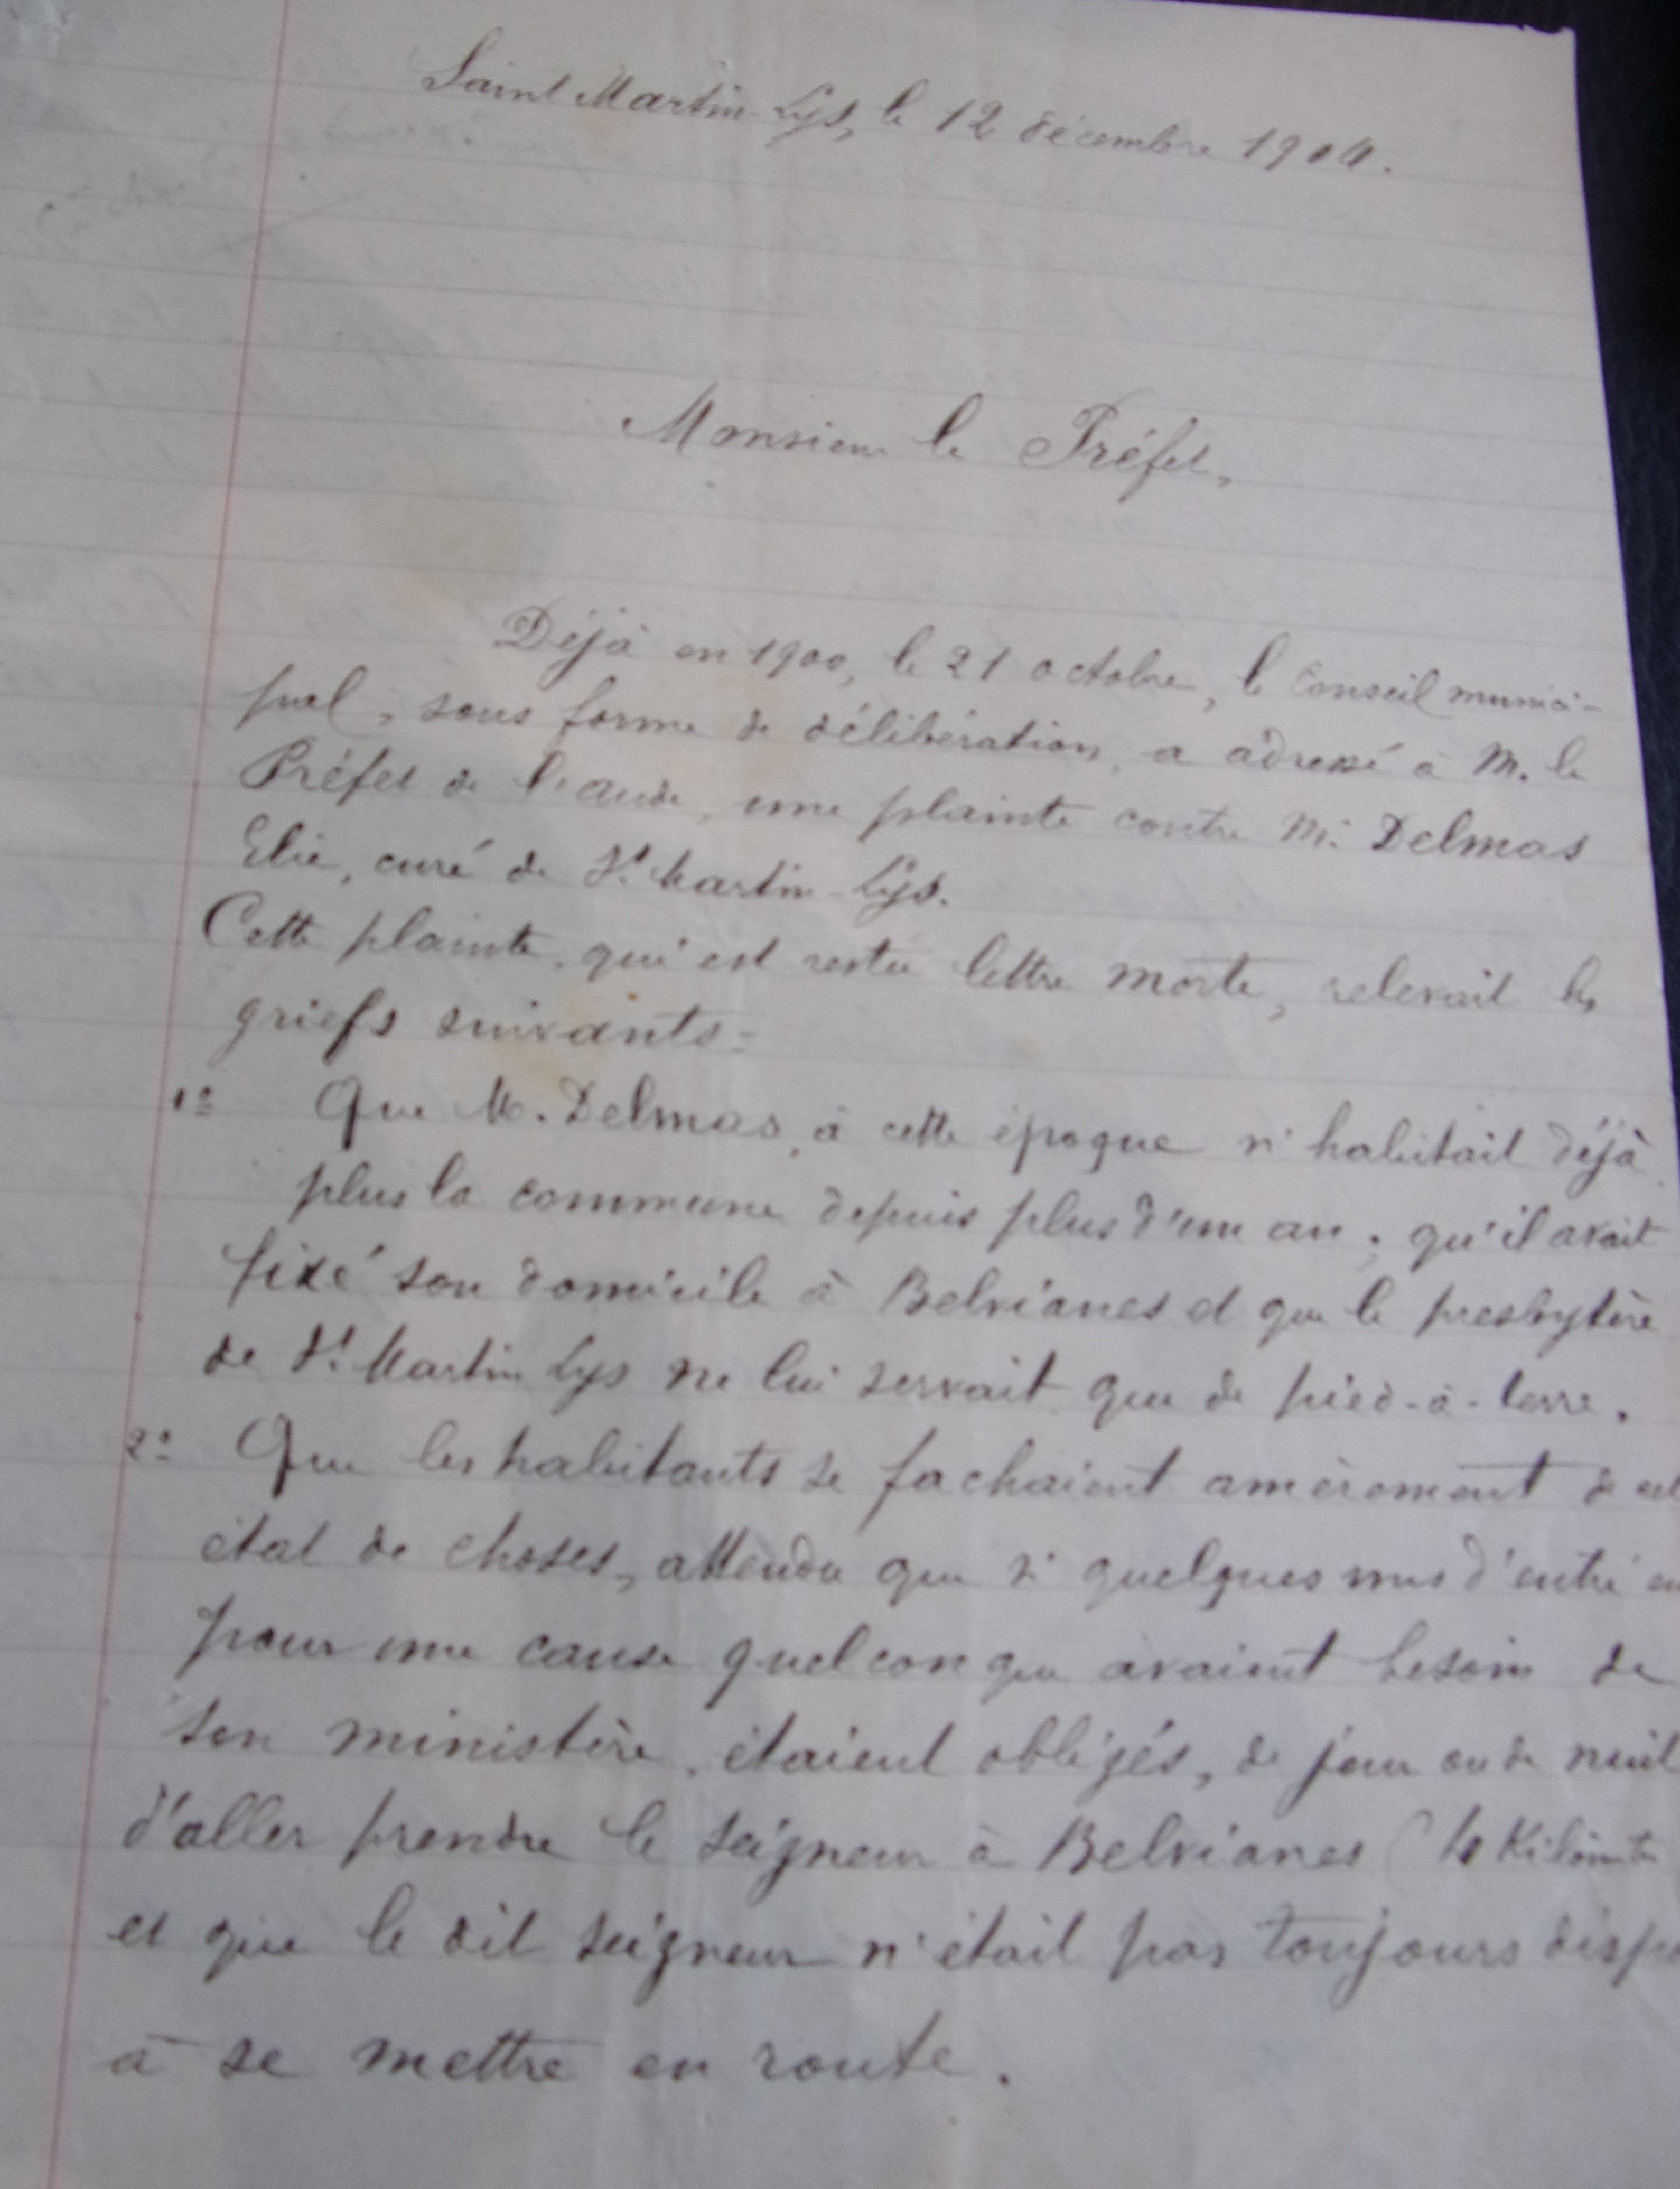 Saint Martin-Lys, le 12 décembre 1904.
Monsieur le Préfet,
Déjà en 1900, le 21 octobre, le Conseil munici-
pal, sous forme de délibération, a adressé à M. le
Préfet de l'aude, une plainte contre M. Delmas
Elie, curé de St Martin-Lys.
Cette plainte, qui est restée lettre morte, relevait les
griefs suivants:
1º Que M. Delmas, à cette époque n'habitait déjà
plus la commune depuis plus d'un an; qu'il avait
fixé son domicile à Belvianes et que le presbytère
de St Martin Lys ne lui servait que de pied-à-terre.
2º Que les habitants se fachaient amèrement de cet
état de choses, attendu que si quelques uns d'entre eu
pour une cause quelconque avaient besoin de
son ministère, étaient obligés, de jour ou de nuit
d'aller prendre le seigneur à Belvianes (4 Kilomèt
et que le dit seigneur n'était pas toujours dispo
à se mettre en route.